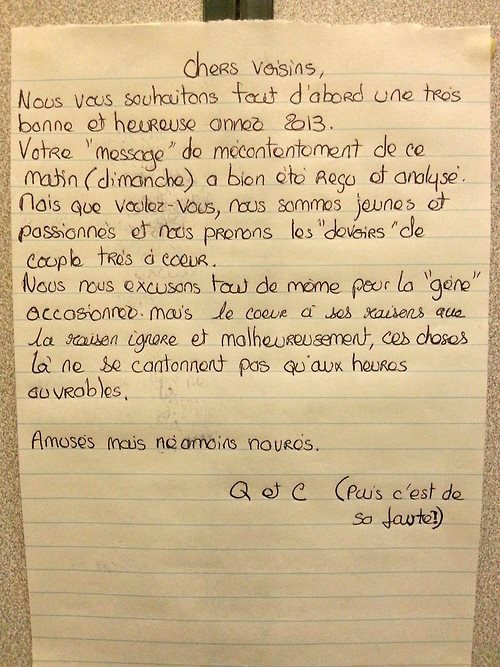 Chers Voisins,
Nous vous souhaitons tout d'abord une très
bonne et heureuse année 2013.
Votre "message" de mécontentement de ce
matin (dimanche) a bien été reçu et analysé.
Mais que voulez-vous, nous sommes jeunes et
passionnés et nous prenons les "devoirs" de
couple très à coeur.
Nous nous excusons tout de même pour la "gêne"
occasionnez. mais le coeur à ses raisons que
la raison ignore et malheureusement, ces choses
là ne se cantonnent pas qu'aux heures
ouvrables.
Amusés mais néamoins navrés.
Q et C (Puis c'est de
sa faute!)